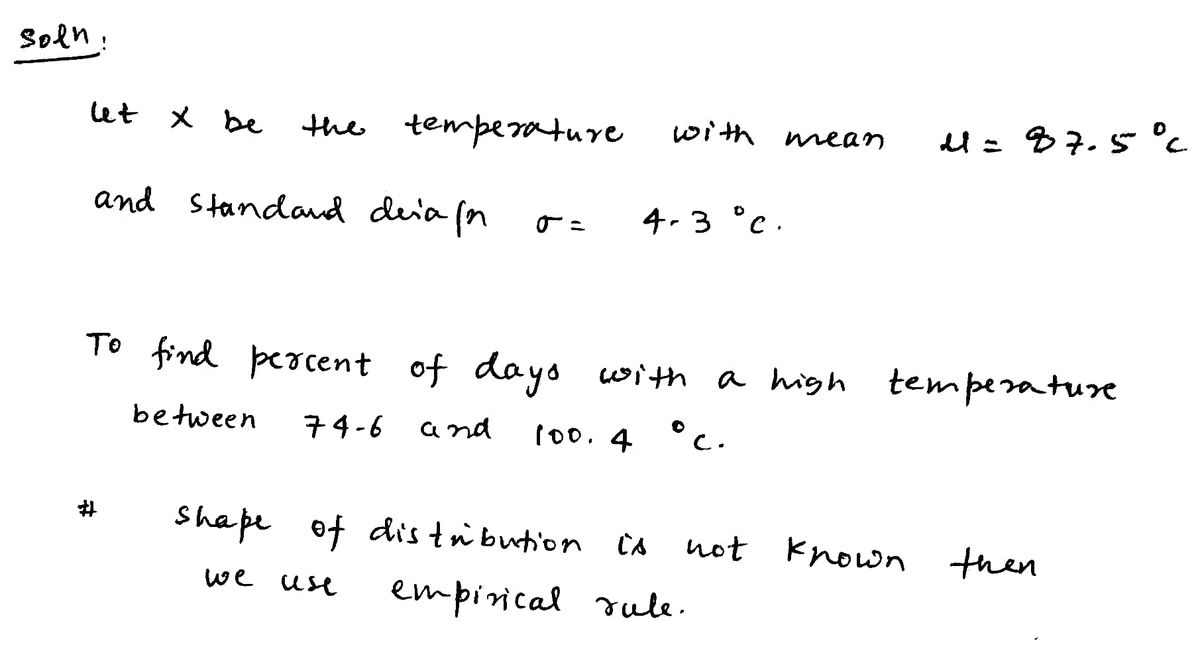 Soln:
let x be the temperature with mean μ = 87.5 °c
and standard deviation σ = 4.3 °c.
To find percent of days with a high temperature
between 74.6 and 100.4 °c.
# shape of distribution is not known then
we use empirical rule.